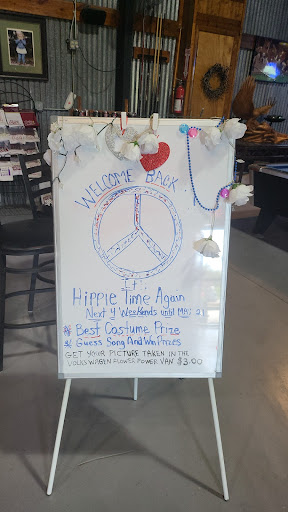 WELCOME BACK
It's
HIPPIE TIME AGAIN
Next 4 Weekends until MAR 21
* Best Costume Prize
* Guess Song And Win Prizes
GET YOUR PICTURE TAKEN IN THE
VOLKSWAGEN FLOWER POWER VAN $3.00